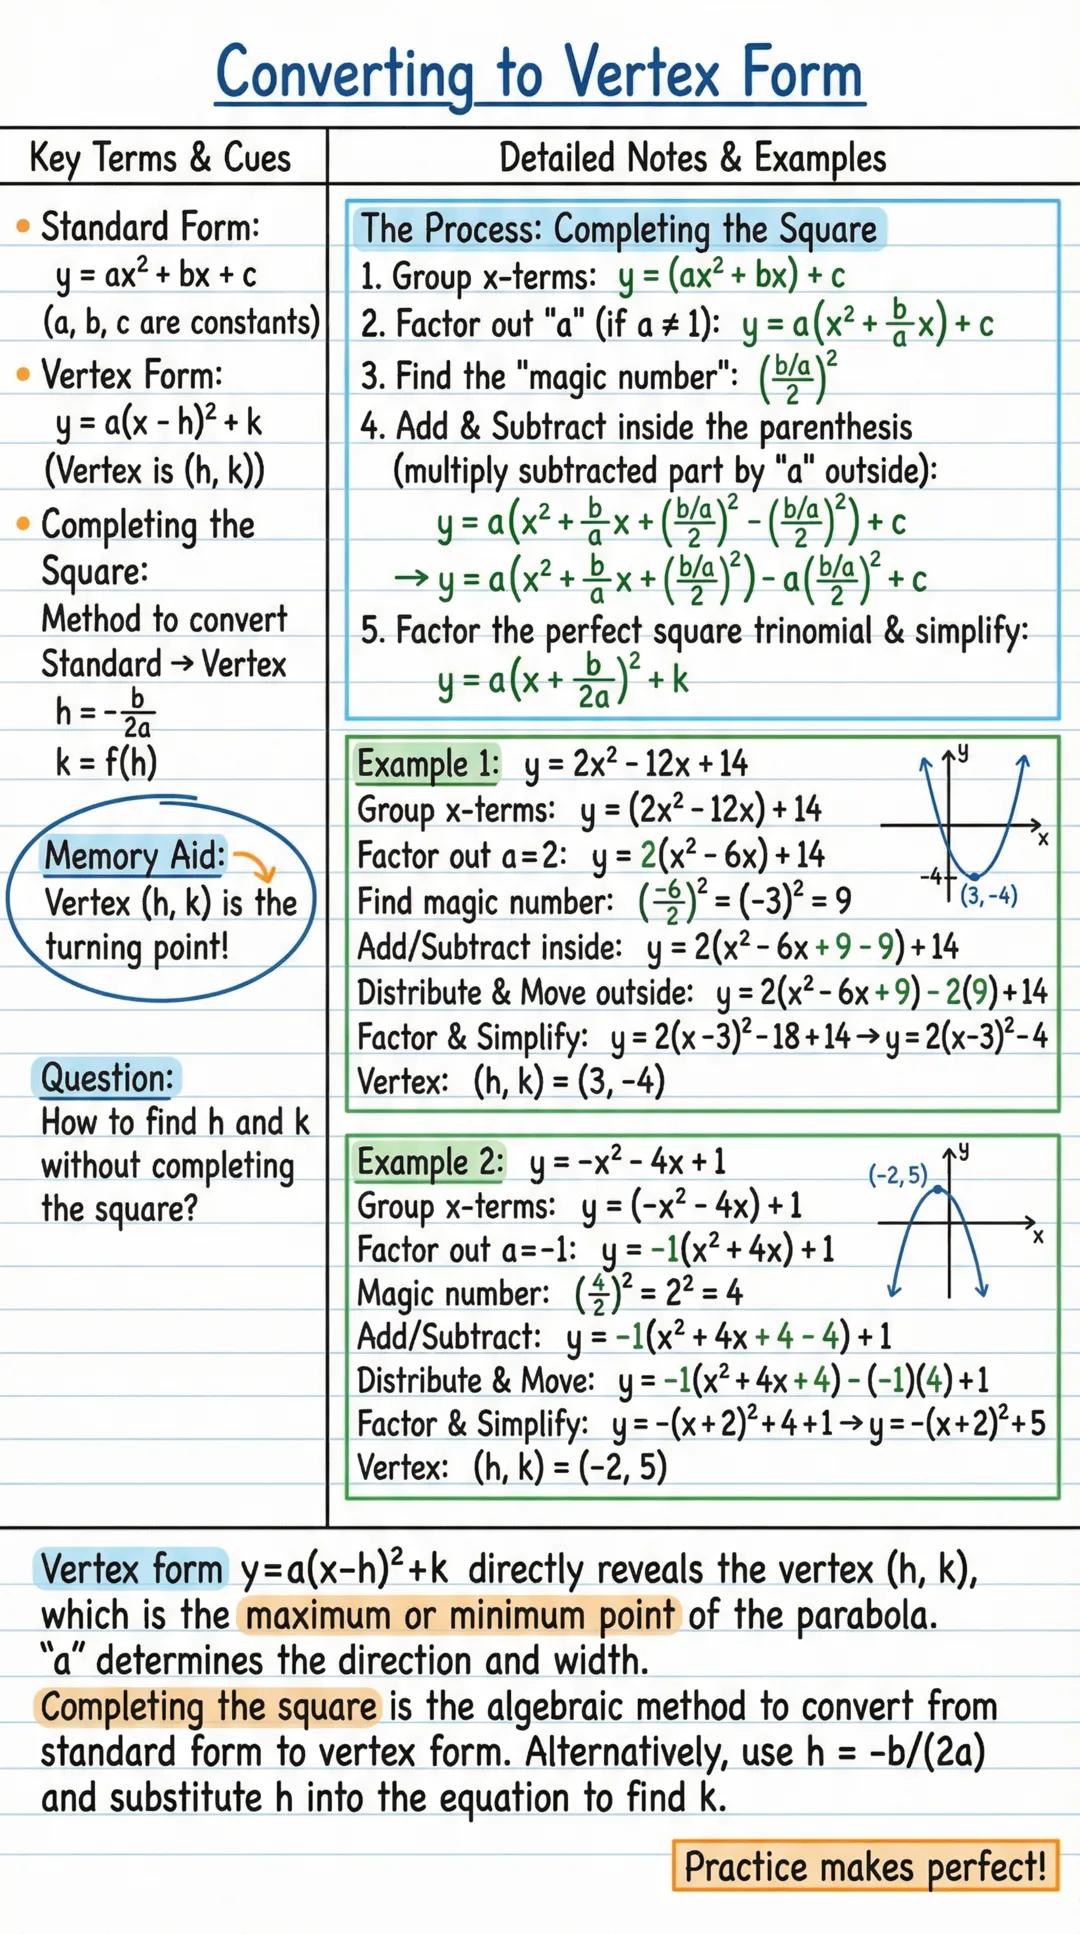 Converting to Vertex Form
Key Terms & Cues
• Standard Form:
y = ax² + bx + c
(a, b, c are constants)
• Vertex Form:
y = a(x - h)² + k
(Vertex is (h, k))
• Completing the
Square:
Method to convert
Standard → Vertex
h = -b/2a
k = f(h)
Memory Aid:
Vertex (h, k) is the
turning point!
Question:
How to find h and k
without completing
the square?
Detailed Notes & Examples
The Process: Completing the Square
1. Group x-terms: y = (ax² + bx) + c
2. Factor out "a" (if a ≠ 1): y = a(x² + b/a x) + c
3. Find the "magic number": ((b/a)/2)²
4. Add & Subtract inside the parenthesis
(multiply subtracted part by "a" outside):
y = a(x² + b/a x + ((b/a)/2)² - ((b/a)/2)²) + c
→ y = a(x² + b/a x + ((b/a)/2)²) - a((b/a)/2)² + c
5. Factor the perfect square trinomial & simplify:
y = a(x + b/2a)² + k
Example 1: y = 2x² - 12x + 14
Group x-terms: y = (2x² - 12x) + 14
Factor out a=2: y = 2(x² - 6x) + 14
Find magic number: (-6/2)² = (-3)² = 9
Add/Subtract inside: y = 2(x² - 6x + 9 - 9) + 14
Distribute & Move outside: y = 2(x² - 6x + 9) - 2(9) + 14
Factor & Simplify: y = 2(x - 3)² - 18 + 14 → y = 2(x-3)² - 4
Vertex: (h, k) = (3, -4)
y
x
-4
(3, -4)
Example 2: y = -x² - 4x + 1
Group x-terms: y = (-x² - 4x) + 1
Factor out a=-1: y = -1(x² + 4x) + 1
Magic number: (4/2)² = 2² = 4
Add/Subtract: y = -1(x² + 4x + 4 - 4) + 1
Distribute & Move: y = -1(x² + 4x + 4) - (-1)(4) + 1
Factor & Simplify: y = -(x+2)² + 4 + 1 → y = -(x+2)² + 5
Vertex: (h, k) = (-2, 5)
(-2, 5)
y
x
Vertex form y=a(x-h)²+k directly reveals the vertex (h, k),
which is the maximum or minimum point of the parabola.
“a” determines the direction and width.
Completing the square is the algebraic method to convert from
standard form to vertex form. Alternatively, use h = -b/(2a)
and substitute h into the equation to find k.
Practice makes perfect!